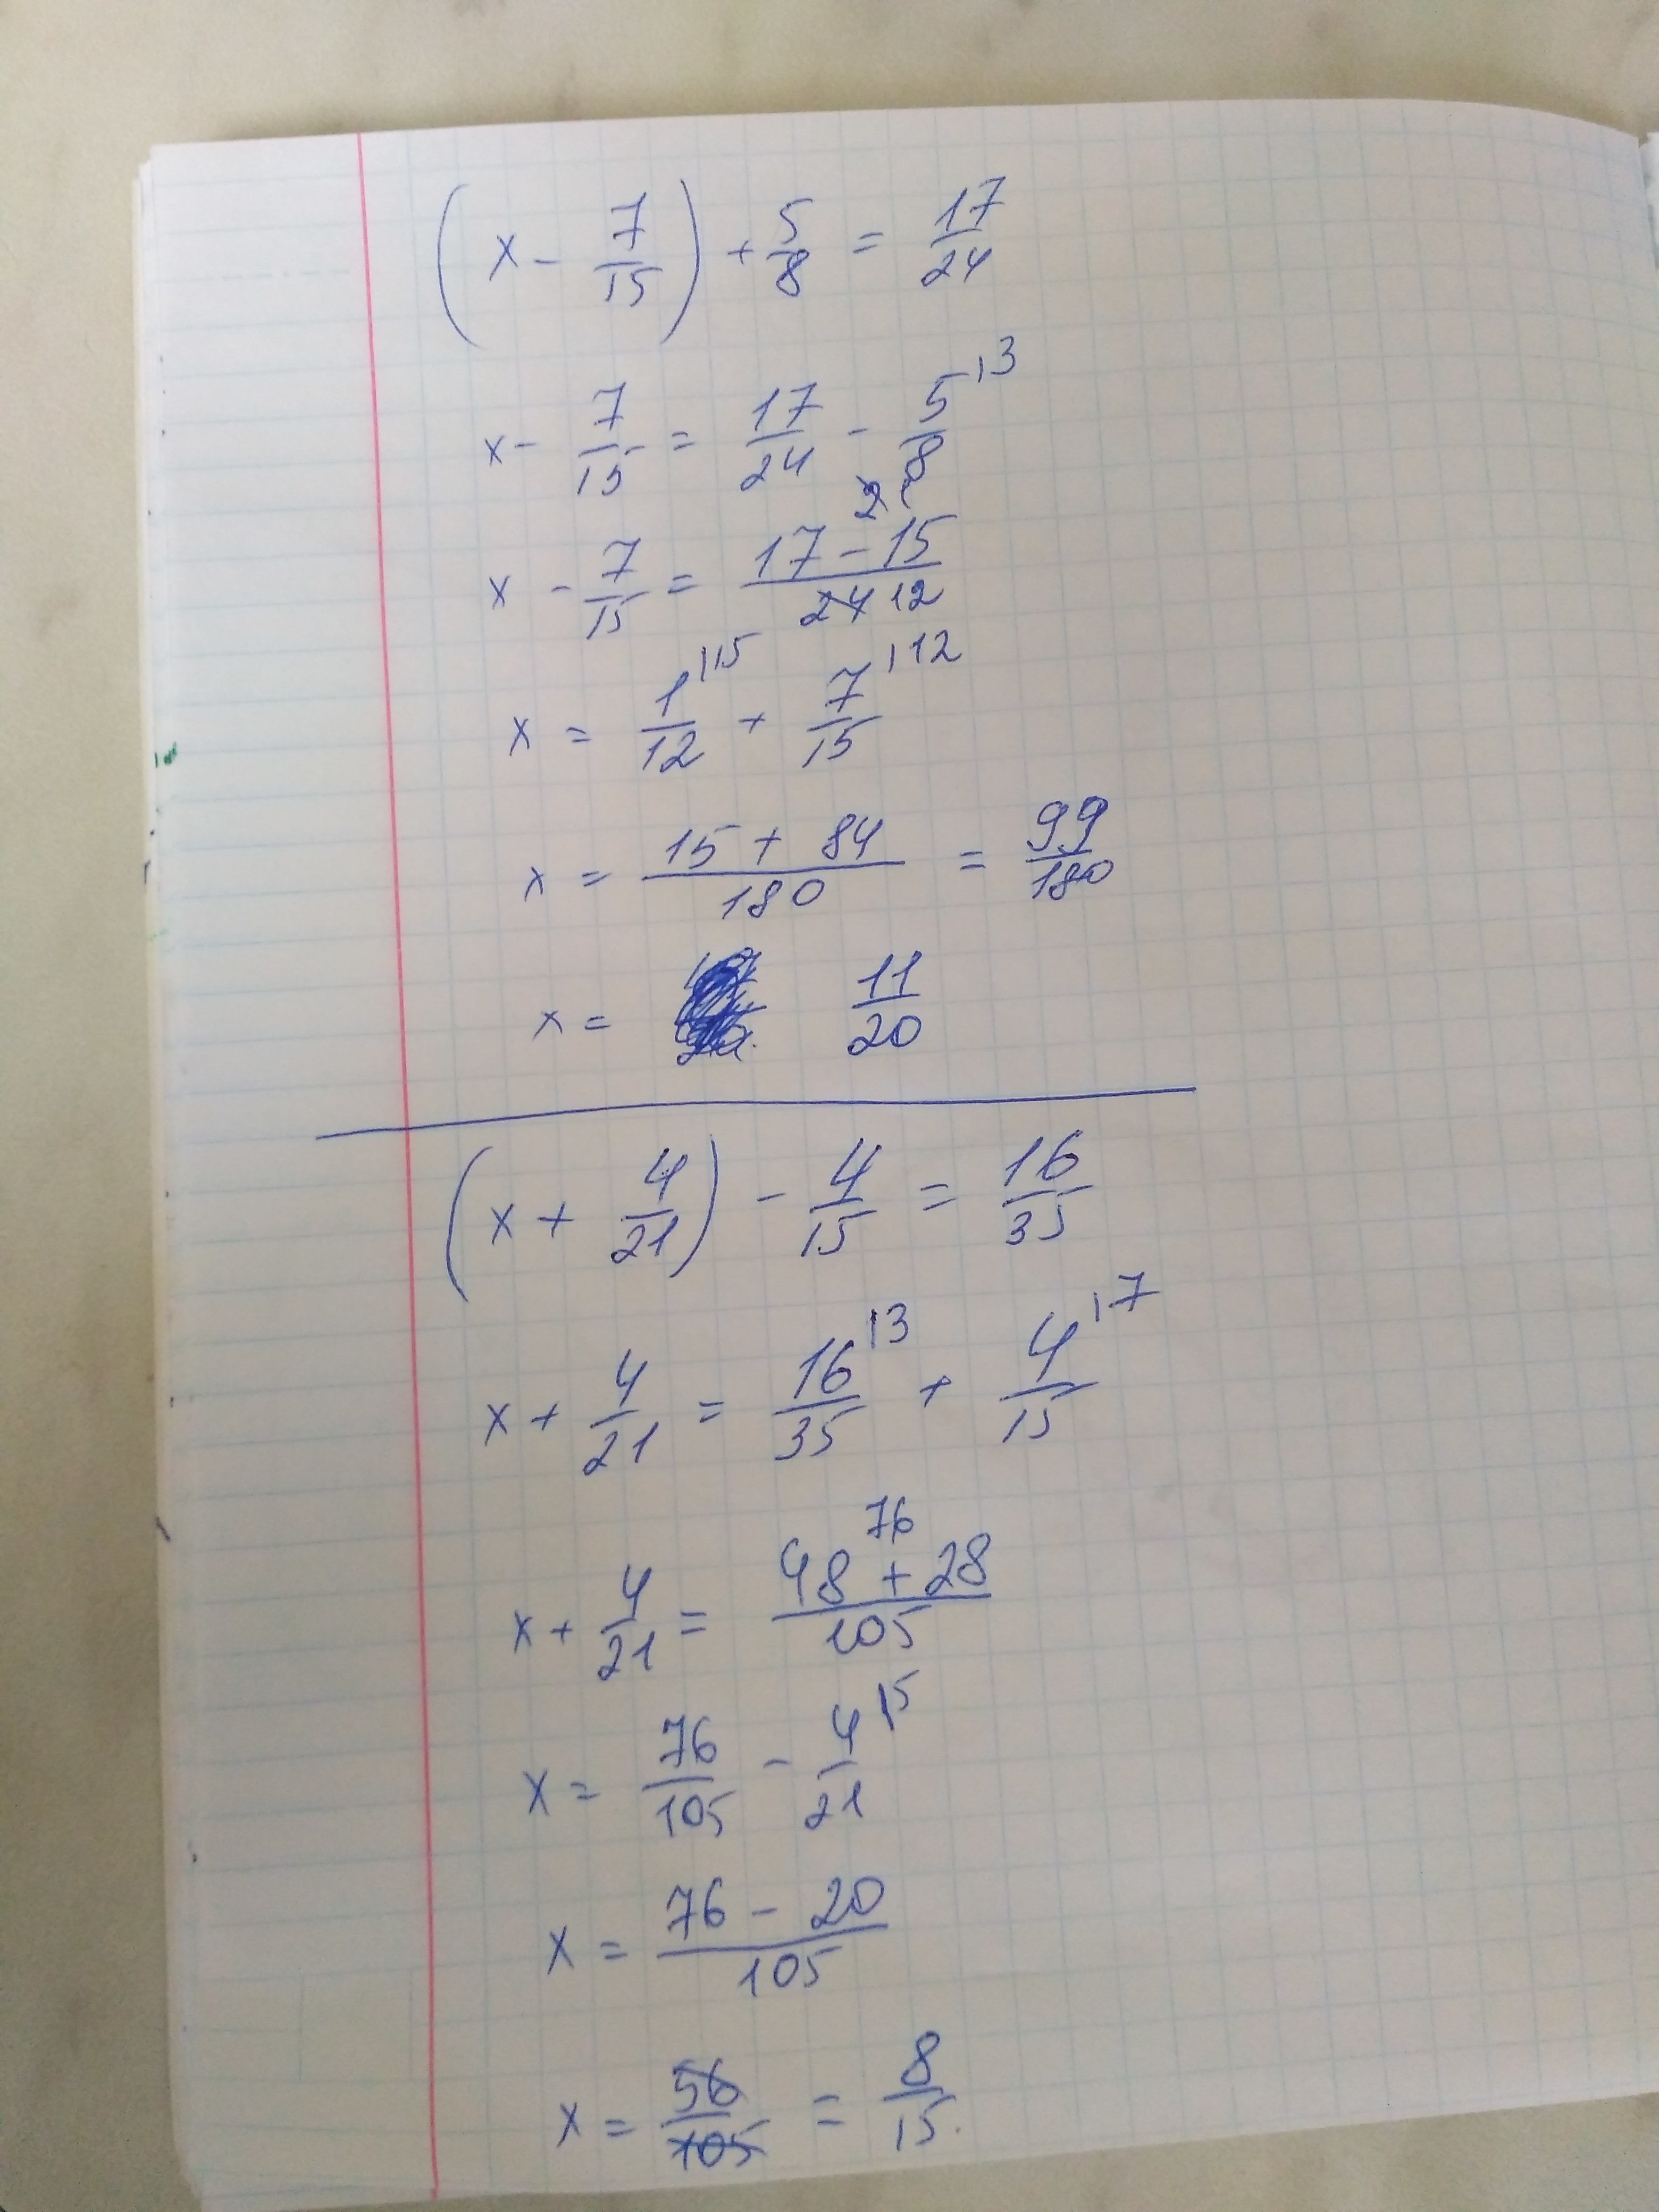 (x - 7/15) + 5/8 = 17/24
x - 7/15 = 17/24 - 5/8 |3
x - 7/15 = 17 - 15 / 24 12
x = 1/12 |15 + 7/15 |12
x = 15 + 84 / 180 = 99/180
x = 11/20
(x + 4/21) - 4/15 = 16/35
x + 4/21 = 16/35 |3 + 4/15 |7
76
x + 4/21 = 48 + 28 / 105
x = 76/105 - 4/21 |5
x = 76 - 20 / 105
x = 56/105 = 8/15.